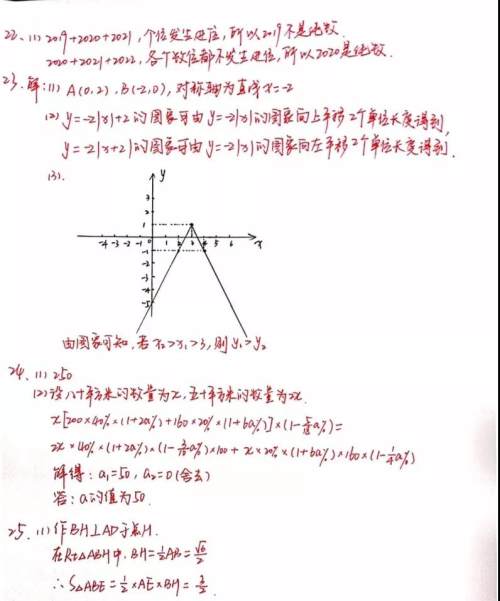 22. (1) 2019+2020+2021, 个位发生进位, 所以2019不是纯数.
2020+2021+2022, 各个数位都不发生进位, 所以2020是纯数.
23. 解: (1) A(0,2), B(-2,0), 对称轴为直线x=-2
(2) y=-2|x|+2的图象可由y=-2|x|的图象向上平移2个单位长度得到,
y=-2|x+2|的图象可由y=-2|x|的图象向左平移2个单位长度得到.
(3).
y
3
2
1
-4 -3 -2 -1 0 1 2 3 4 5 6 x
-1
-2
-3
-4
-5
由图象可知, 若x₂>x₁>3, 则y₁>y₂
24. (1) 250
(2) 设八十平方米的数量为x, 五十平方米的数量为2x.
2x×40%×(1+2a%)×
解得: a₁=50, a₂=0(舍去)
答: a的值为50.
25. (1) 作BH⊥AD于点H.
在Rt△ABH中, BH=½AB=
∴ S△ABE=½×AE×BH=